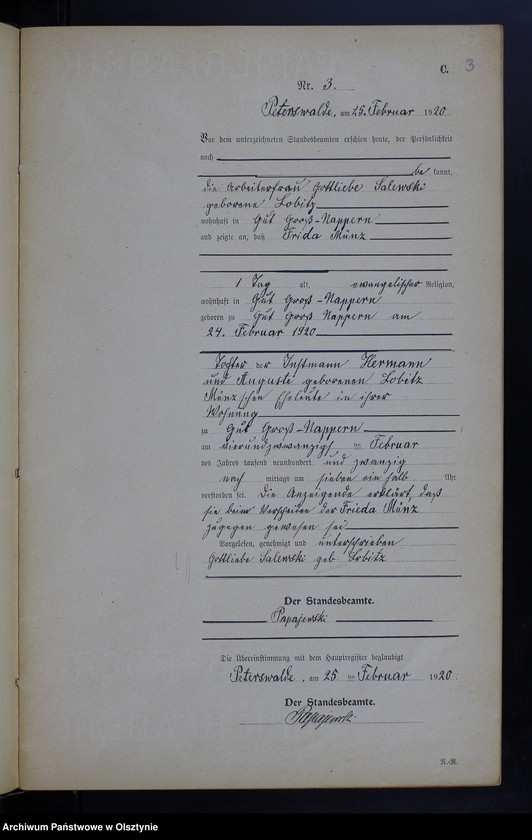 C. 3
Nr. 3.
Peterswalde, am 25. Februar 1920
Vor dem unterzeichneten Standesbeamten erschien heute, der Persönlichkeit
nach
be kannt,
die Arbeiterfrau Gottliebe Salewski
geborene Lobitz
wohnhaft in Gut Groß-Nappern
und zeigte an, daß Frida Münz
1 Tag alt, evangelischer Religion,
wohnhaft in Gut Groß-Nappern
geboren zu Gut Groß Nappern am
24. Februar 1920
Tochter der Instmann Hermann
und Auguste geborenen Lobitz
Münz'schen Eheleute in ihrer
Wohnung
zu Gut Groß-Nappern
am vierundzwanzigst en Februar
des Jahres tausend neunhundert und zwanzig
nach mittags um sieben ein halb Uhr
verstorben sei. Die Anzeigende erklärt, daß
sie beim Verscheiden der Frieda Münz
zugegen gewesen sei
Vorgelesen, genehmigt und unterschrieben
Gottliebe Salewski geb Lobitz
Der Standesbeamte.
Papajewski
Die Übereinstimmung mit dem Hauptregister beglaubigt
Peterswalde, am 25 ten Februar 1920
Der Standesbeamte.
Papajewski
R.-R.
Archiwum Państwowe w Olsztynie